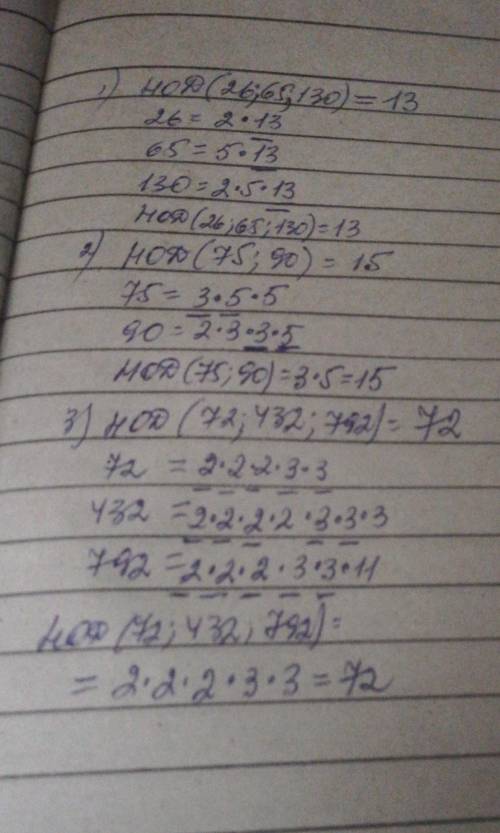 1) НОД(26;65;130)=13
26=2·13
65=5·13
130=2·5·13
НОД(26;65;130)=13
2) НОД(75;90)=15
75=3·5·5
90=2·3·3·5
НОД(75;90)=3·5=15
3) НОД(72;432;792)=72
72=2·2·2·3·3
432=2·2·2·2·3·3·3
792=2·2·2·3·3·11
НОД(72;432;792)=
=2·2·2·3·3=72